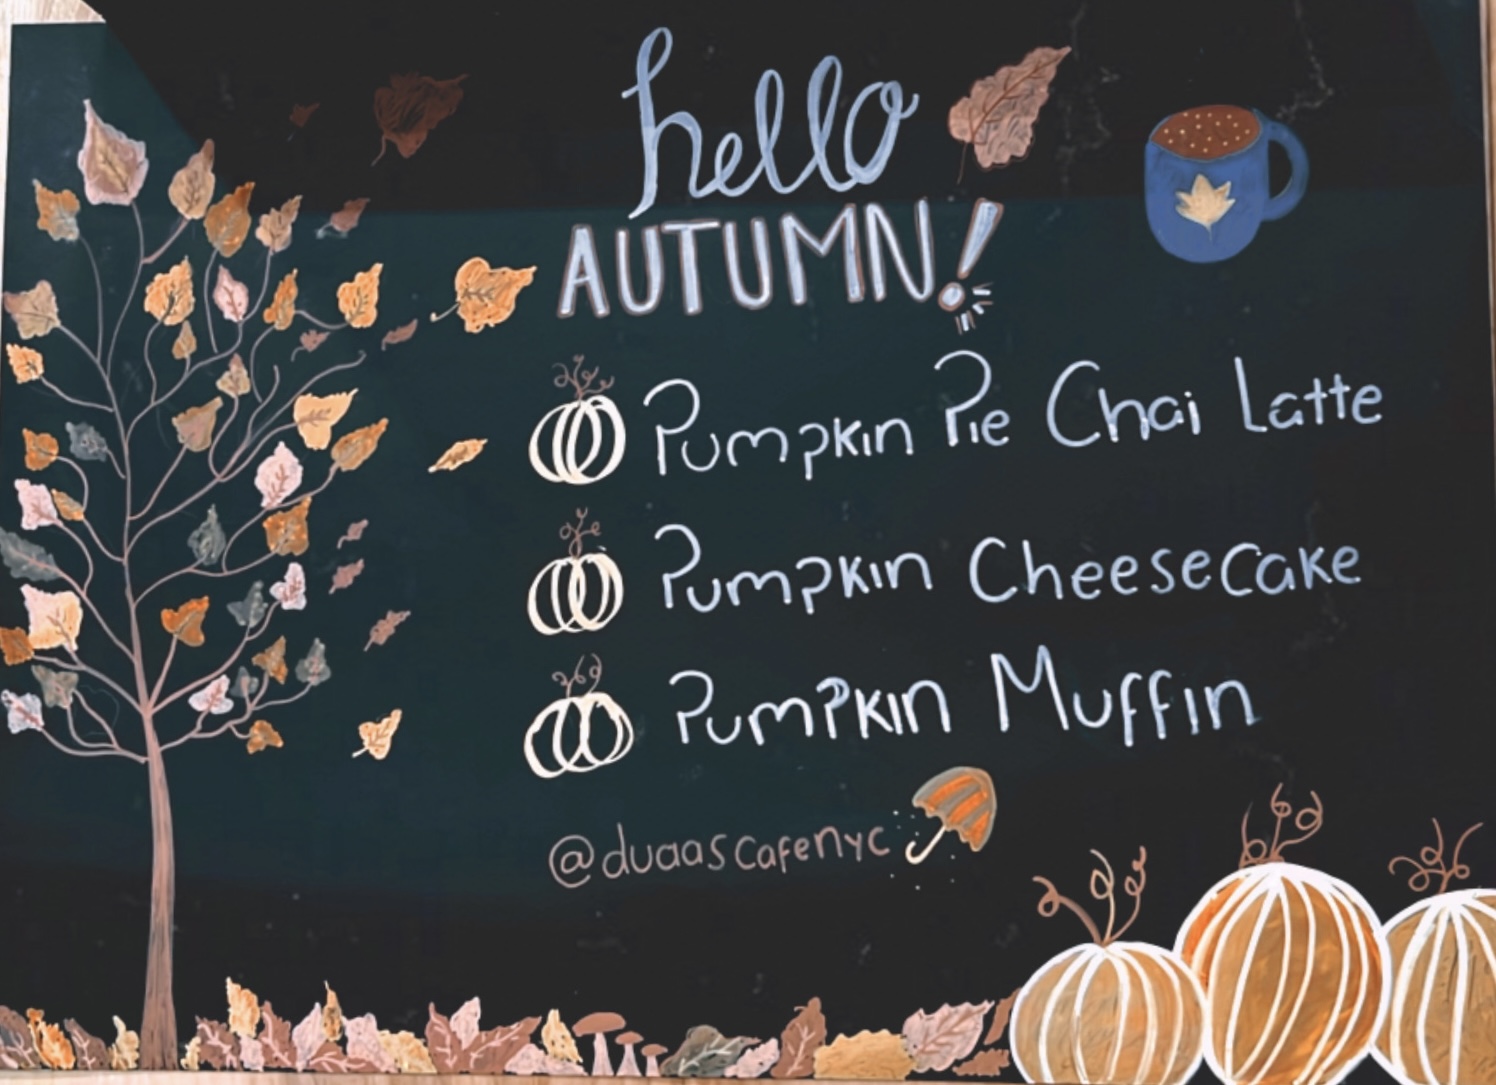 hello
AUTUMN!
Pumpkin Pie Chai Latte
Pumpkin Cheesecake
Pumpkin Muffin
@duaascafenyc